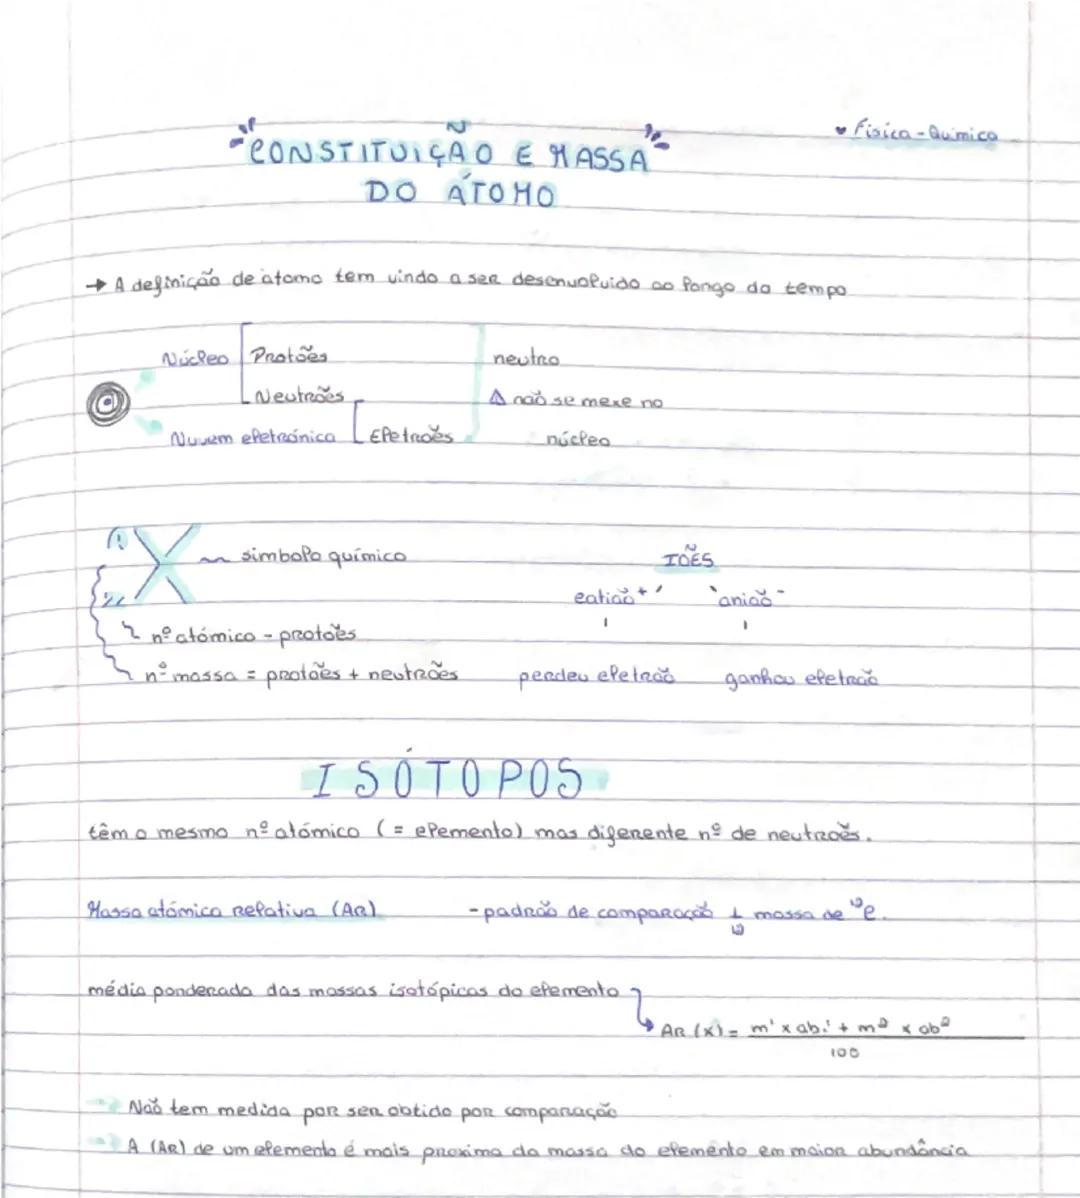 ♥ Física-Química
CONSTITUIÇÃO E MASSA
DO ÁTOMO
→ A definição de átomo tem vindo a ser desenvolvido ao longo do tempo
Núcleo Protões neutro
Neutrões Δ não se mexe no
Nuvem eletrónica Eletrões núcleo
X simbolo químico IÕES
catião + anião -
nº atómico - protões
nº massa = protões + neutrões perdeu eletrão ganhou eletrão
ISÓTOPOS
têm o mesmo nº atómico (= elemento) mas diferente nº de neutrões.
Massa atómica Relativa (AR) - padrão de comparação 1/12 massa de ¹²C.
média ponderada das massas isotópicas do elemento
AR (x) = m¹ x ab.¹ + m² x ab²
100
→ Não tem medida por ser obtido por comparação
→ A (AR) de um elemento é mais proxima da massa do elemento em maior abundância